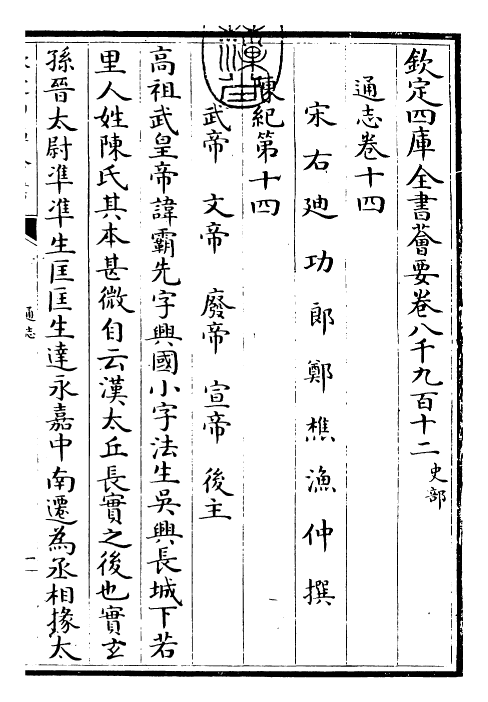 欽定四庫全書薈要卷八千九百十二 史部
通志卷十四
宋右迪功郎鄭樵漁仲撰
陳紀第十四
武帝 文帝 廢帝 宣帝 後主
高祖武皇帝諱霸先字興國小字法生吳興長城下若
里人姓陳氏其本甚微自云漢太丘長實之後也實玄
孫晉太尉準準生匡匡生達永嘉中南遷為丞相掾太
通志